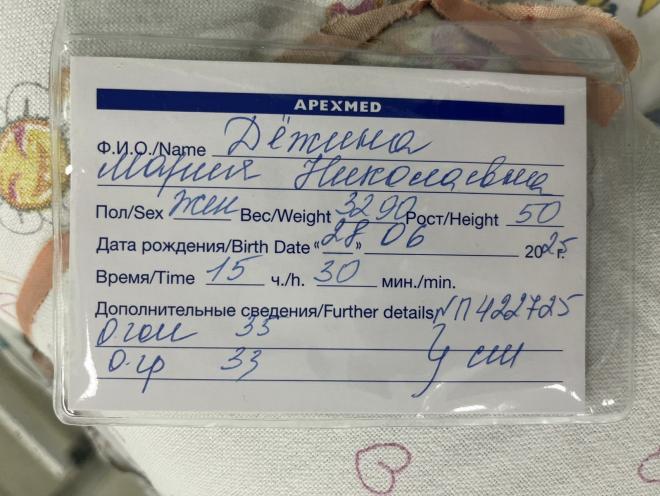 APEXMED
Ф.И.О./Name Дёжина
Мария Николаевна
Пол/Sex Жен Вес/Weight 3290 Рост/Height 50
Дата рождения/Birth Date «28» 06 2025 г.
Время/Time 15 ч./h. 30 мин./min.
Дополнительные сведения/Further details N П422725
О.гол 35
О.гр 33